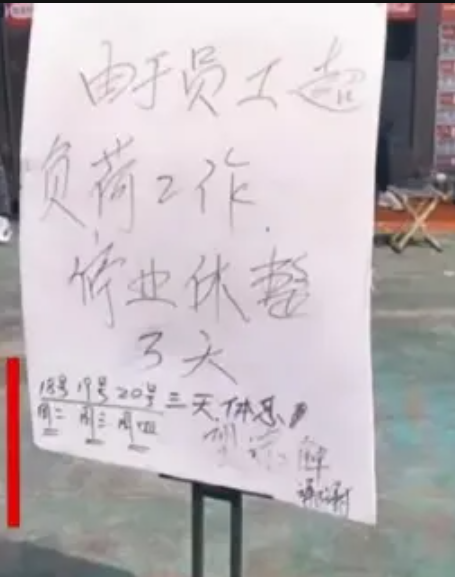 由于员工超
负荷工作.
停业休整
3天
18号 19号 20号 三天休息
周二 周三 周四
望 解
谢谢